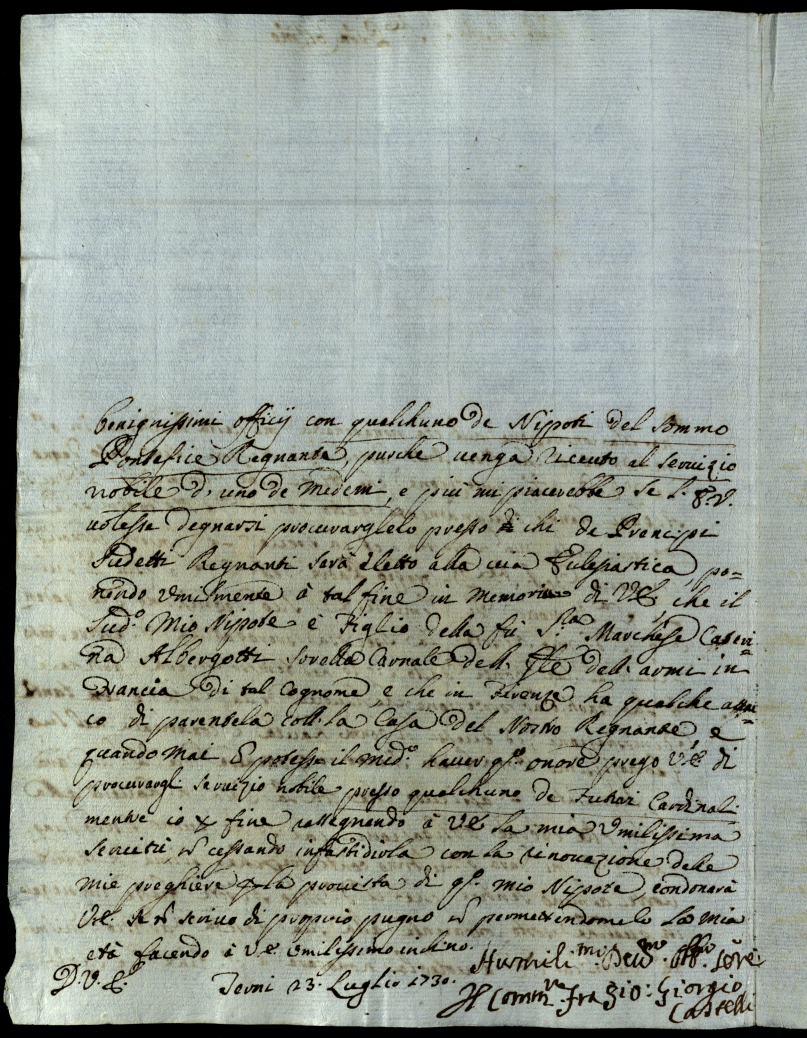 benignissimi officij con qualchuno de Nipoti del sommo
Pontefice Regnante, purche venga riceuto al seruizio
nobile d'uno de medemi, e piu mi piacerebbe se l. E.V.
volesse degnarsi procurarglelo presso di chi de Prencipi
sudetti Regnanti sarà eletto alla via Eclesiastica, po=
nendo vmilmente à tal fine in memoria di V.E. che il
sud.º mio Nipote è Figlio della fù S.ra Marchese Cateri=
na Albergotti sorella Carnale dell. delle armi in
Francia di tal Cognome, e che in Firenze ha qualche atta=
co di parentela coll. la Casa del Nostro Regnante, e
quando mai potesse il med.º hauer q.to onore prego V.E. di
procurargl seruizio nobile presso qualchuno de Futuri Cardinali
mentre io x fine rassegnando à V.E. la mia vmilissima
seruitù cessando infastidirla con la rinouazione delle
mie preghiere x la prouista di q.to mio Nipote, condonarà
V.E. se scriuo di proprio pugno permettendomelo la mia
età facendo à V.E. vmilissimo inchino.
D.V.E. Terni 23. Luglio 1730.
Humilis.mi Deu.mo Obb.mo Ser.re
Il Comm.re fra Gio: Giorgio
Castelli